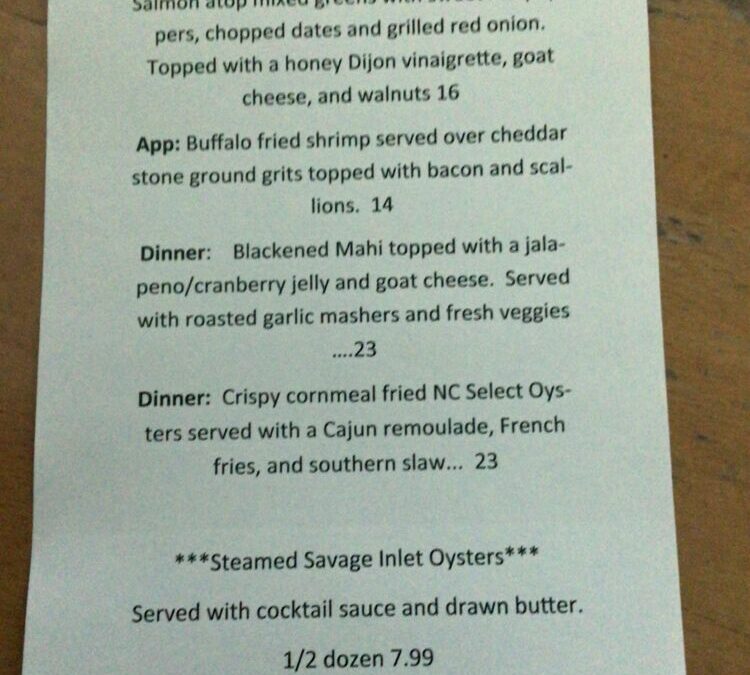 Salmon atop mixed greens with
pers, chopped dates and grilled red onion.
Topped with a honey Dijon vinaigrette, goat
cheese, and walnuts 16
App: Buffalo fried shrimp served over cheddar
stone ground grits topped with bacon and scal-
lions. 14
Dinner: Blackened Mahi topped with a jala-
peno/cranberry jelly and goat cheese. Served
with roasted garlic mashers and fresh veggies
....23
Dinner: Crispy cornmeal fried NC Select Oys-
ters served with a Cajun remoulade, French
fries, and southern slaw... 23
***Steamed Savage Inlet Oysters***
Served with cocktail sauce and drawn butter.
1/2 dozen 7.99